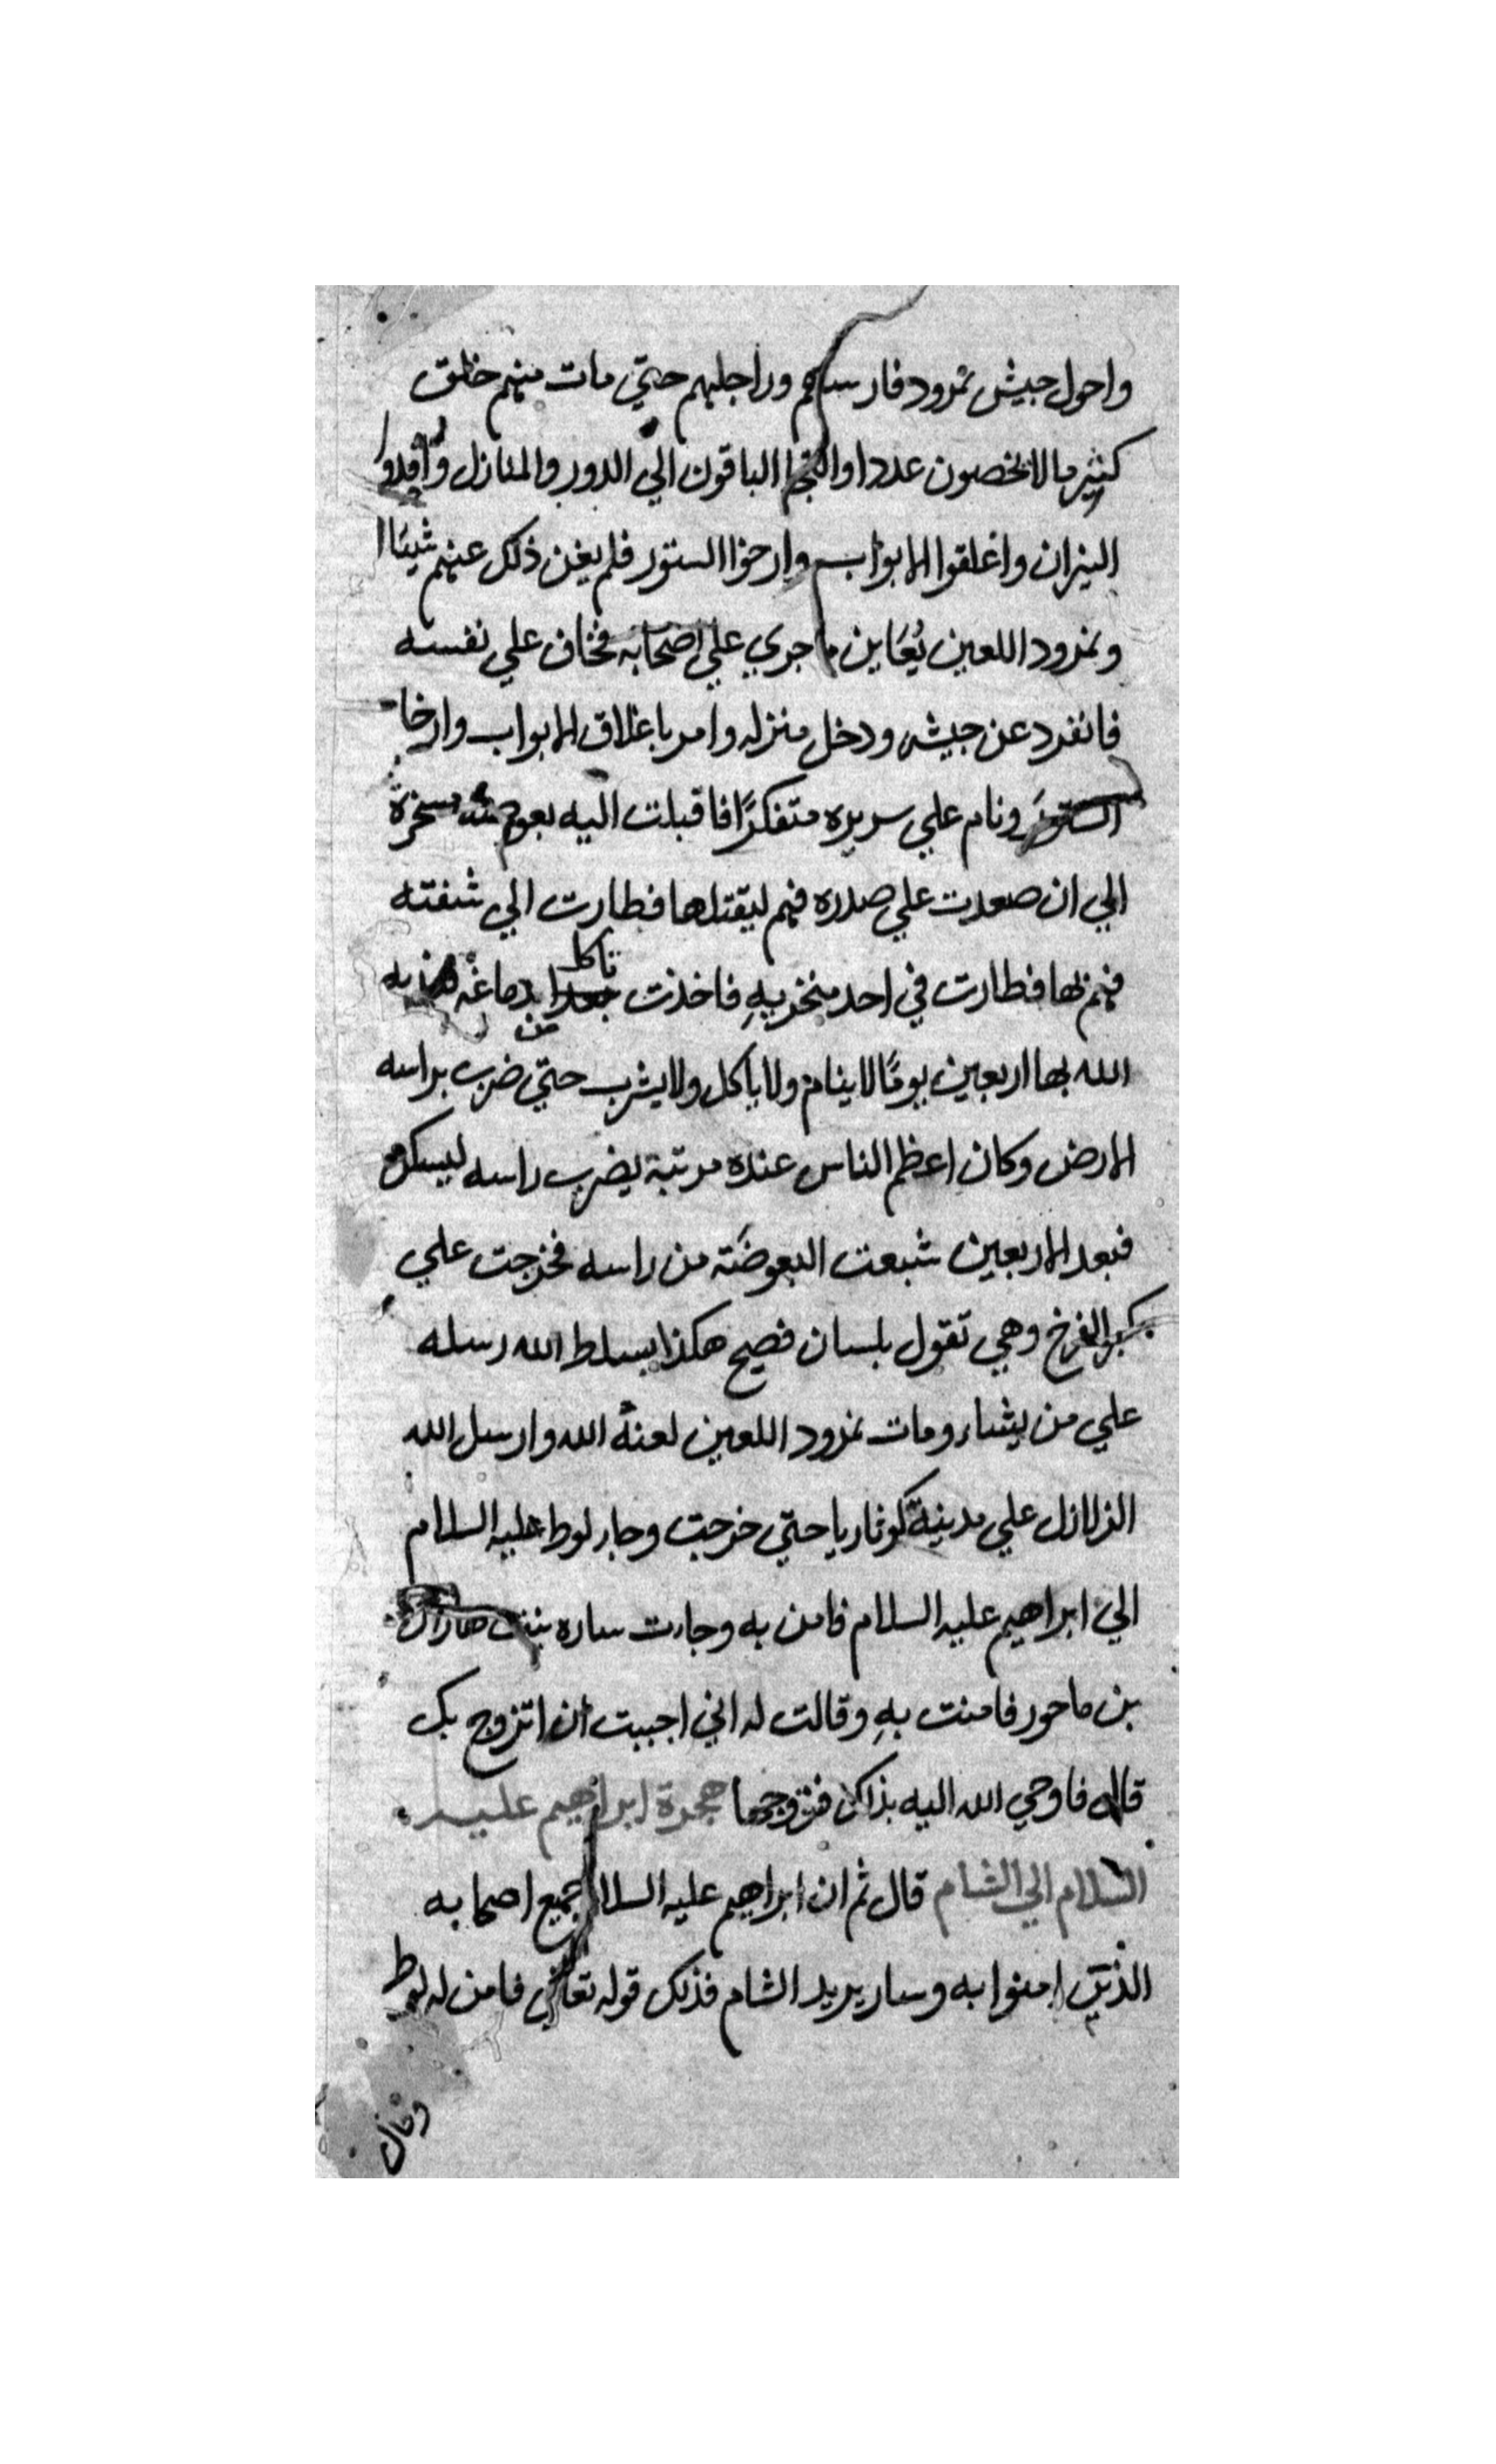 واحول جيش نمرود فارسهم وراجلهم حتي مات منهم خلق
كثير ما لا يحصون عددا والتجا الباقون الي الدور والمنازل واوقدوا
النيران واغلقوا الابواب وارخوا الستور فلم يغن ذلك عنهم شيئا
ونمرود اللعين يُعَاين ما جري علي اصحابه فخاف علي نفسه
فانفرد عن جيشه ودخل منزله وامر باغلاق الابواب وارخا
الستور ونام علي سريره متفكرًا فاقبلت اليه بعوضة
الي ان صعدت علي صدره فهم ليقتلها فطارت الي شفته
فهم بها فطارت في احد منخريهِ فاخذت تاكل من دماغه فعذبه
الله بها اربعين يومًا لا ينام ولا ياكل ولا يشرب حتي ضرب براسه
الارض وكان اعظم الناس عنده مرتبة يضرب راسه
فبعد الاربعين شبعت البعوضَة من راسه فخرجت علي
كبر الفرخ وهي تقول بلسان فصيح هكذا يسلط الله رسله
علي من يشاء ومات نمرود اللعين لعنهُ الله وارسل الله
الزلازل علي مدينة كوثاريا حتي خرجت وجاء لوط عليه السلام
الي ابراهيم عليه السلام فامن به وجات ساره بنت هاران
بن ماحور فامنت بهِ وقالت له اني احببت ان اتزوج بك
قال فاوحي الله اليه بذلك فتزوجها هجرة ابراهيم عليه
السلام الي الشام قال ثم ان ابراهيم عليه السلام جميع اصحابه
الذين امنوا به وسار يريد الشام فذلك قوله تعالي فامن له لوط
وقال